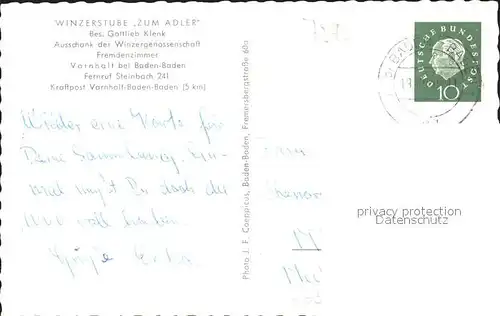 WINZERSTUBE „ZUM ADLER"
Bes. Gottlieb Klenk
Ausschank der Winzergenossenschaft
Fremdenzimmer
Varnhalt bei Baden-Baden
Fernruf Steinbach 241
Kraftpost Varnhalt-Baden-Baden (5 km)
Wieder eine Karte für
Deine Sammlung. Ein-
mal mußt Du doch die
voll haben.
Grüße
Photo J. F. Coenpicus, Baden-Baden, Fremersbergstraße 68a
DEUTSCHE BUNDESPOST
10
privacy protection
Datenschutz